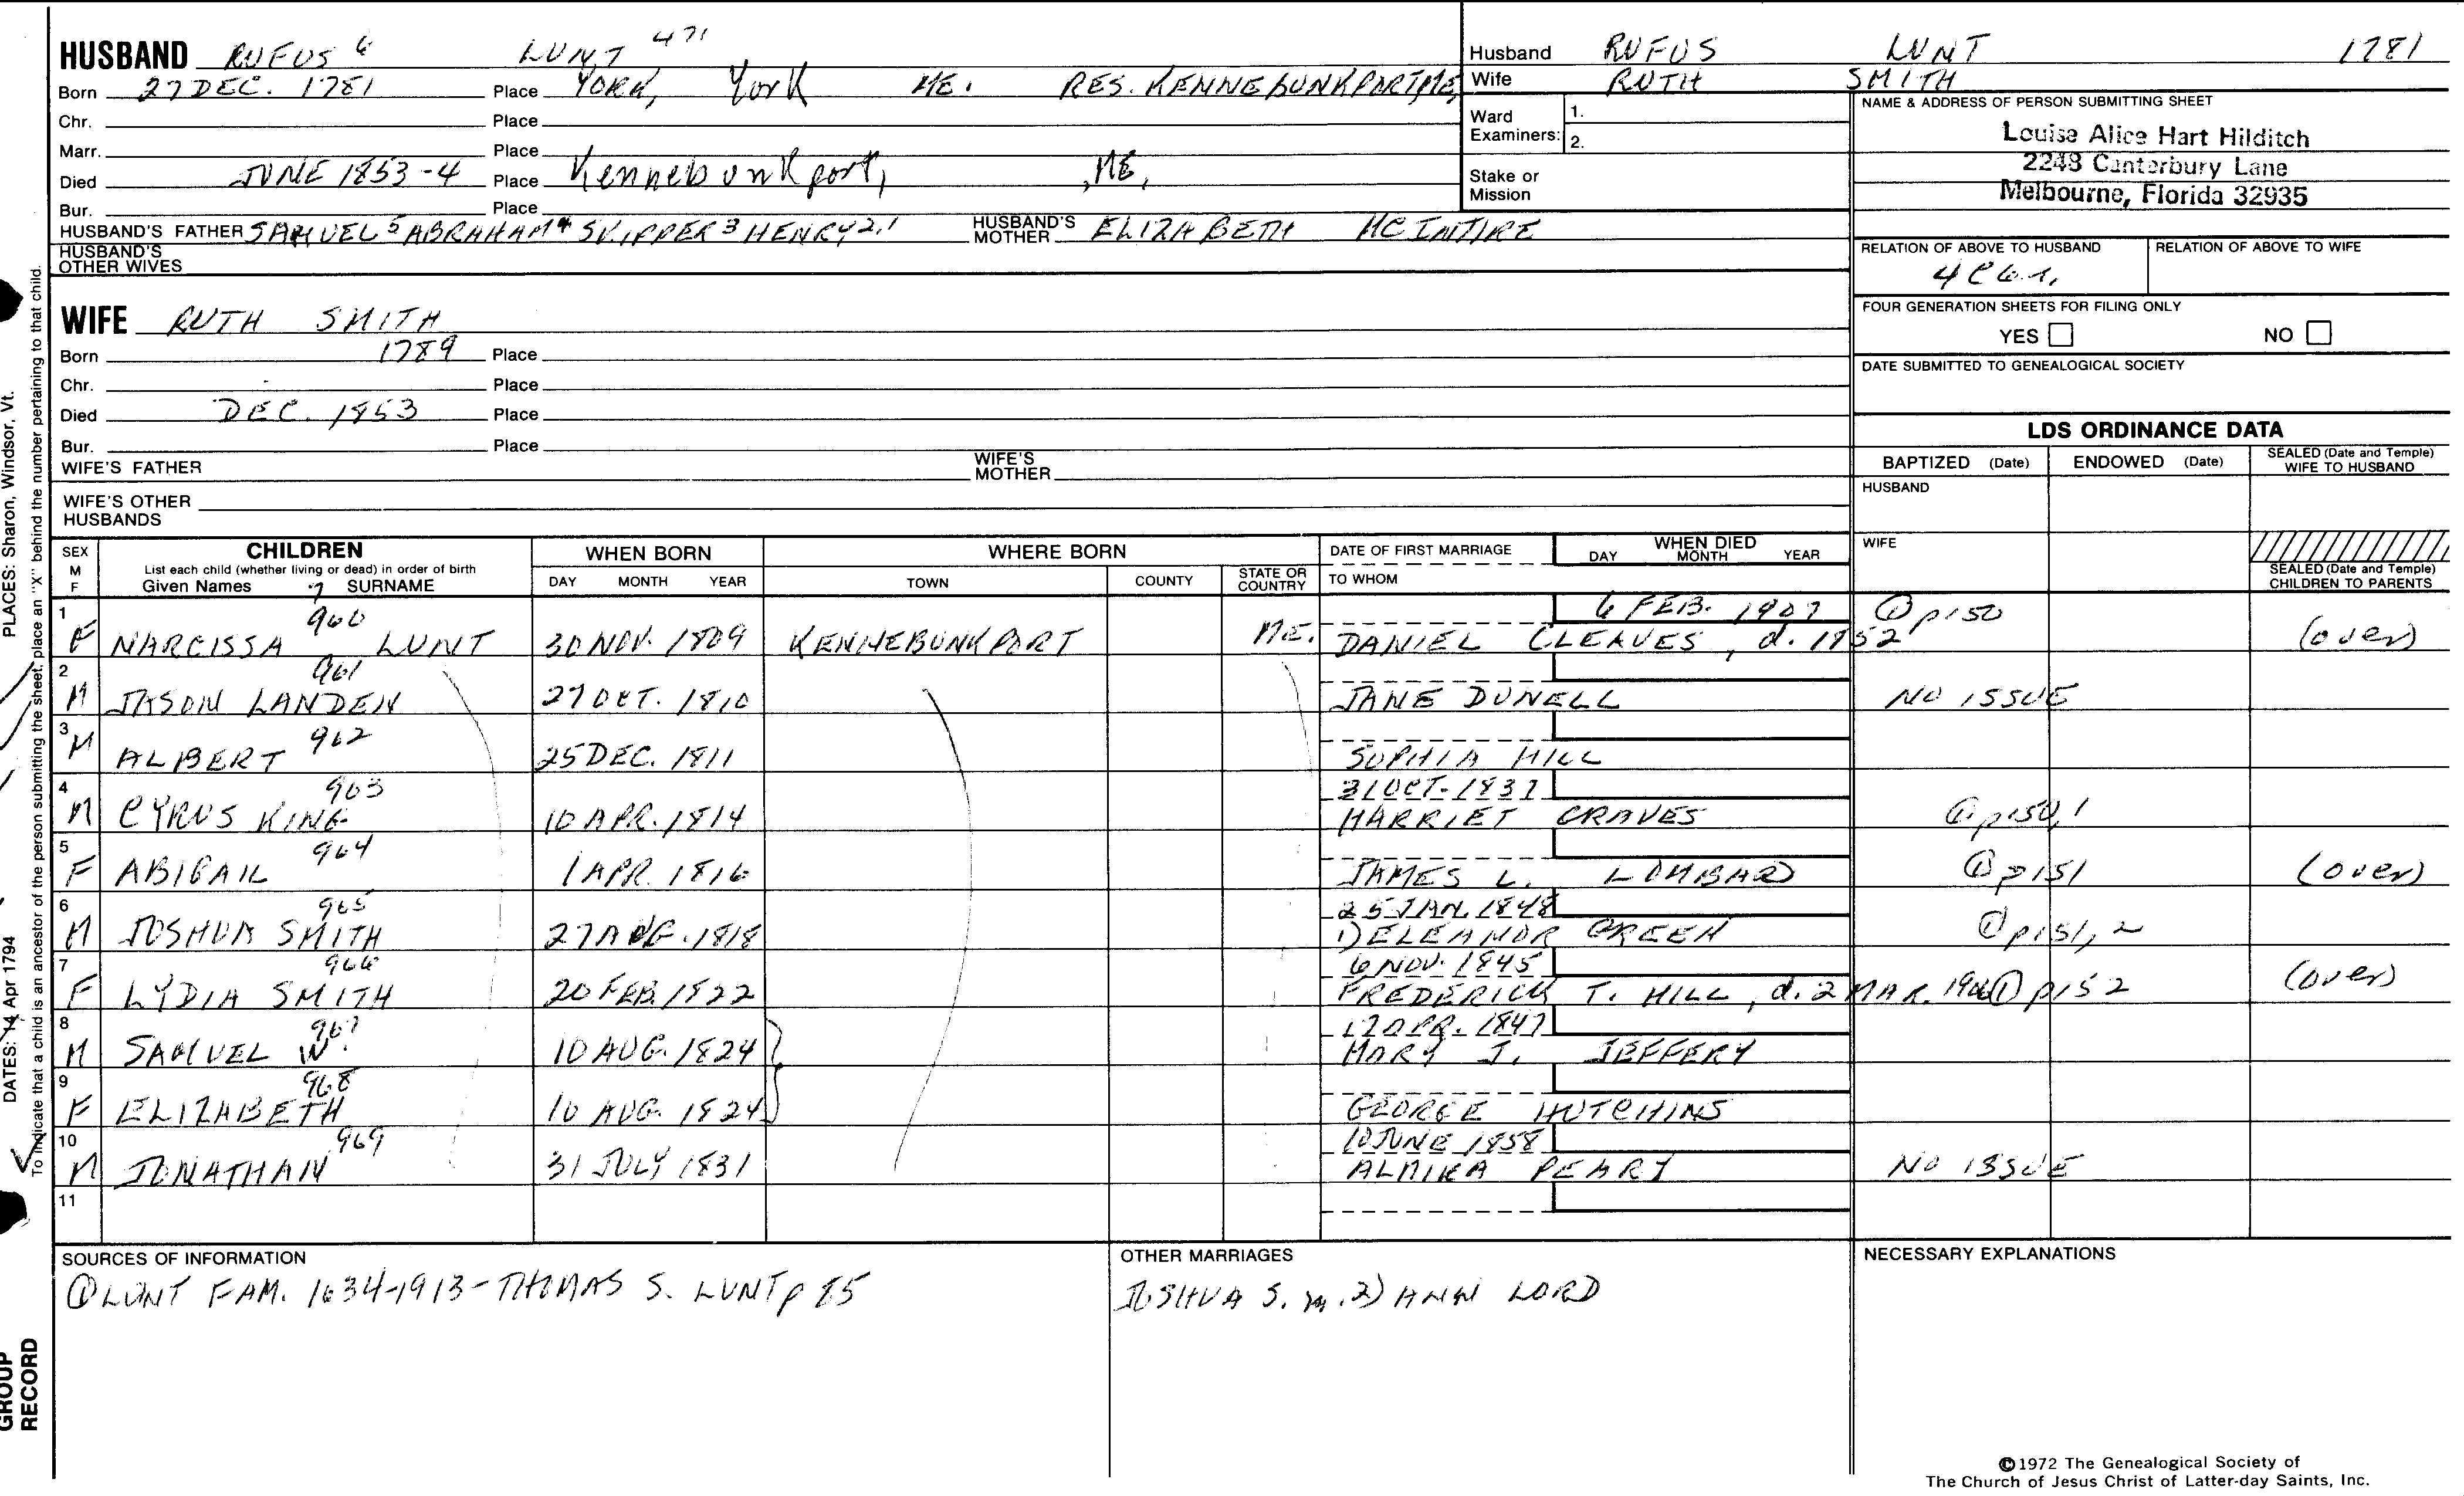 HUSBAND RUFUS 6 LUNT 471
Born 27 DEC. 1781 Place YORK, York ME. RES. KENNEBUNKPORT, ME,
Chr. Place
Marr. Place
Died JUNE 1853-4 Place Kennebunkport, , ME,
Bur. Place
HUSBAND'S FATHER SAMUEL 5 ABRAHAM 4 SKIPPER 3 HENRY 2,1 HUSBAND'S MOTHER ELIZABETH MCINTIRE
HUSBAND'S OTHER WIVES
WIFE RUTH SMITH
Born 1789 Place
Chr. Place
Died DEC. 1853 Place
Bur. Place
WIFE'S FATHER WIFE'S MOTHER
WIFE'S OTHER HUSBANDS
Husband RUFUS LUNT 1781
Wife RUTH SMITH
Ward Examiners: 1. 2.
Stake or Mission
NAME & ADDRESS OF PERSON SUBMITTING SHEET
Louise Alice Hart Hilditch
2248 Canterbury Lane
Melbourne, Florida 32935
RELATION OF ABOVE TO HUSBAND RELATION OF ABOVE TO WIFE
FOUR GENERATION SHEETS FOR FILING ONLY
YES NO
DATE SUBMITTED TO GENEALOGICAL SOCIETY
LDS ORDINANCE DATA
BAPTIZED (Date) ENDOWED (Date) SEALED (Date and Temple) WIFE TO HUSBAND
HUSBAND
WIFE
SEALED (Date and Temple) CHILDREN TO PARENTS
SEX M F CHILDREN WHEN BORN WHERE BORN DATE OF FIRST MARRIAGE WHEN DIED
List each child (whether living or dead) in order of birth
Given Names 7 SURNAME DAY MONTH YEAR TOWN COUNTY STATE OR COUNTRY TO WHOM DAY MONTH YEAR
1 960 6 FEB. 1907 ① p150
F NARCISSA LUNT 30 NOV. 1809 KENNEBUNKPORT ME. DANIEL CLEAVES, d. 1852 (over)
2 961
M JASON LANDEN 27 OCT. 1810 JANE DUNELL NO ISSUE
3 962
M ALBERT 25 DEC. 1811 SOPHIA HILL
4 963 31 OCT. 1837
M CYRUS KING 10 APR. 1814 HARRIET GRAVES ① p150,1
5 964
F ABIGAIL 1 APR. 1816 JAMES L. LOMBARD ① p151 (over)
6 965 25 JAN. 1848
M JOSHUA SMITH 27 AUG. 1818 1) ELEANOR GREEN ① p151, 2
7 966 6 NOV. 1845
F LYDIA SMITH 20 FEB. 1822 FREDERICK T. HILL, d. 2 MAR. ① p152 (over)
8 967 17 APR. 1847
M SAMUEL W. 10 AUG. 1824 MARY J. JEFFERY
9 968
F ELIZABETH 10 AUG. 1824 GEORGE HUTCHINS
10 969 10 JUNE 1858
M JONATHAN 31 JULY 1831 ALMIRA PEARY NO ISSUE
11
SOURCES OF INFORMATION
① LUNT FAM. 1634-1913 - THOMAS S. LUNT p 85
OTHER MARRIAGES
JOSHUA S. m. 2) ANN LORD
NECESSARY EXPLANATIONS
©1972 The Genealogical Society of
The Church of Jesus Christ of Latter-day Saints, Inc.
PLACES: Sharon, Windsor, Vt.
DATES: 14 Apr 1794
To indicate that a child is an ancestor of the person submitting the sheet, place an "X" behind the number pertaining to that child.
GROUP
RECORD